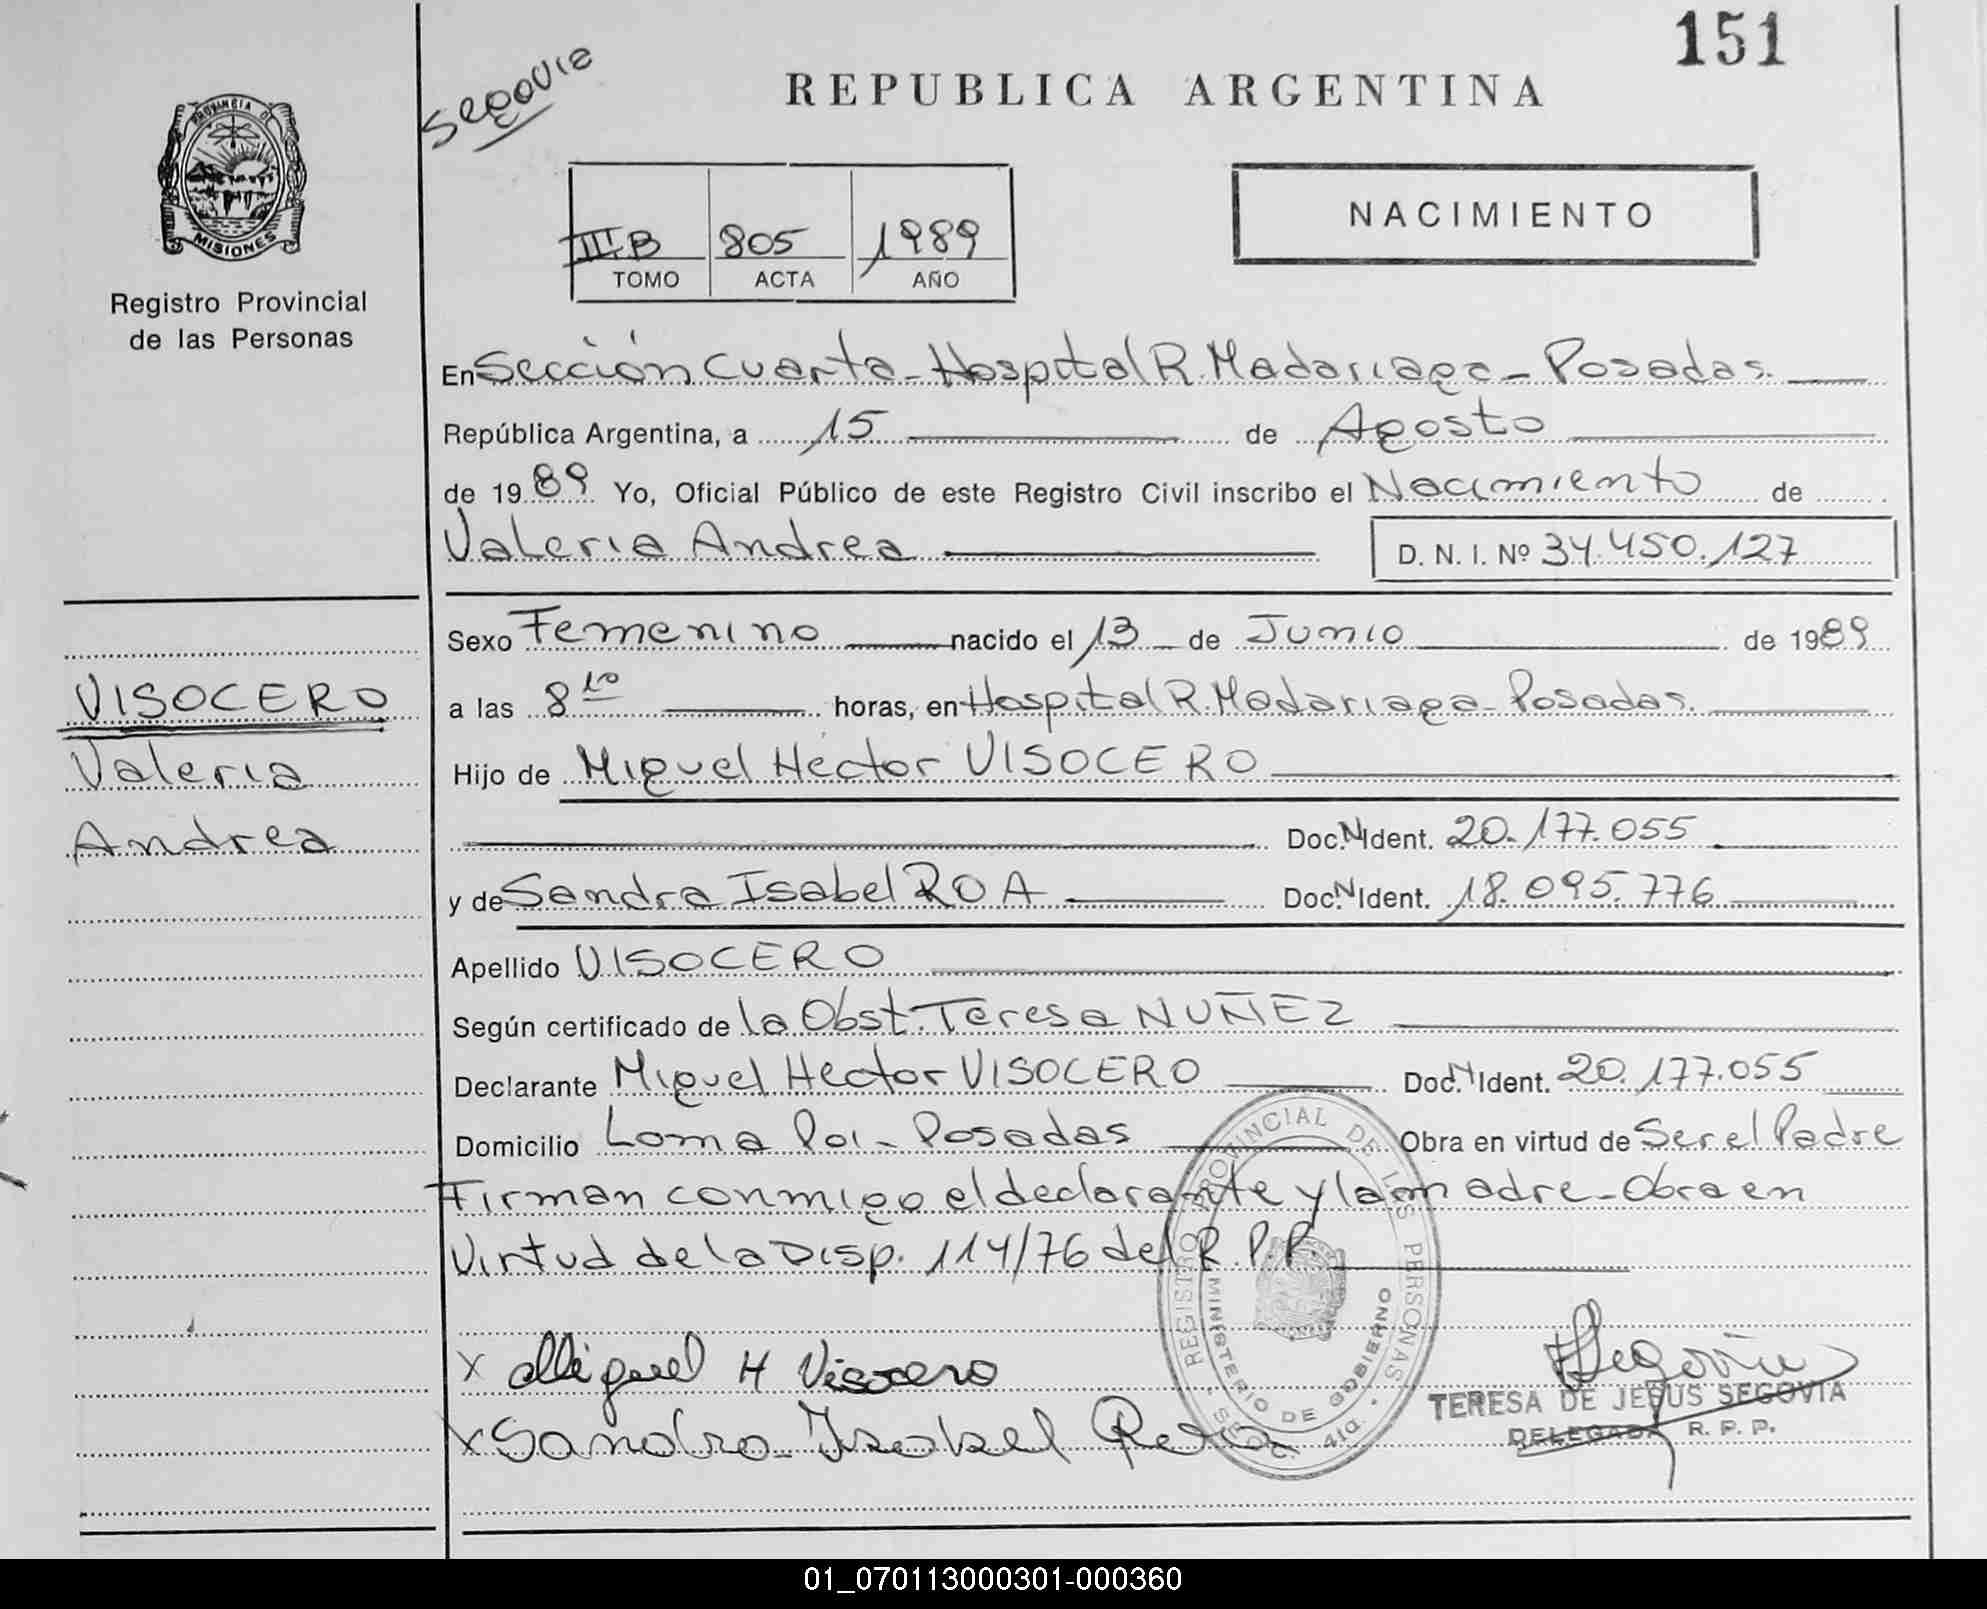 151
Segovia
REPUBLICA ARGENTINA
PROVINCIA DE
MISIONES
Registro Provincial
de las Personas
NACIMIENTO
III.B 805 1989
TOMO ACTA AÑO
En Sección Cuarta - Hospital R. Madariaga - Posadas.
República Argentina, a 15 de Agosto
de 1989 Yo, Oficial Público de este Registro Civil inscribo el Nacimiento de
Valeria Andrea D. N. I. Nº 34.450.127
Sexo Femenino nacido el 13 de Junio de 1989
VISOCERO
Valeria
Andrea
a las 8 10 horas, en Hospital R. Madariaga - Posadas.
Hijo de Miguel Hector VISOCERO
Doc. N. Ident. 20.177.055
y de Sandra Isabel ROA Doc. N. Ident. 18.095.776
Apellido VISOCERO
Según certificado de la Obst. Teresa NUÑEZ
Declarante Miguel Hector VISOCERO Doc. N. Ident. 20.177.055
Domicilio Loma Poi - Posadas Obra en virtud de Ser el Padre
Firman conmigo el declarante y la madre - Obra en
Virtud de la Disp. 114/76 del R.P.P.
REGISTRO PROVINCIAL DE LAS PERSONAS
MINISTERIO DE GOBIERNO
SECC. 4ta.
x Miguel H Visocero
x Sandra Isabel Roa
Segovia
TERESA DE JESUS SEGOVIA
DELEGADA R. P. P.
01_070113000301-000360